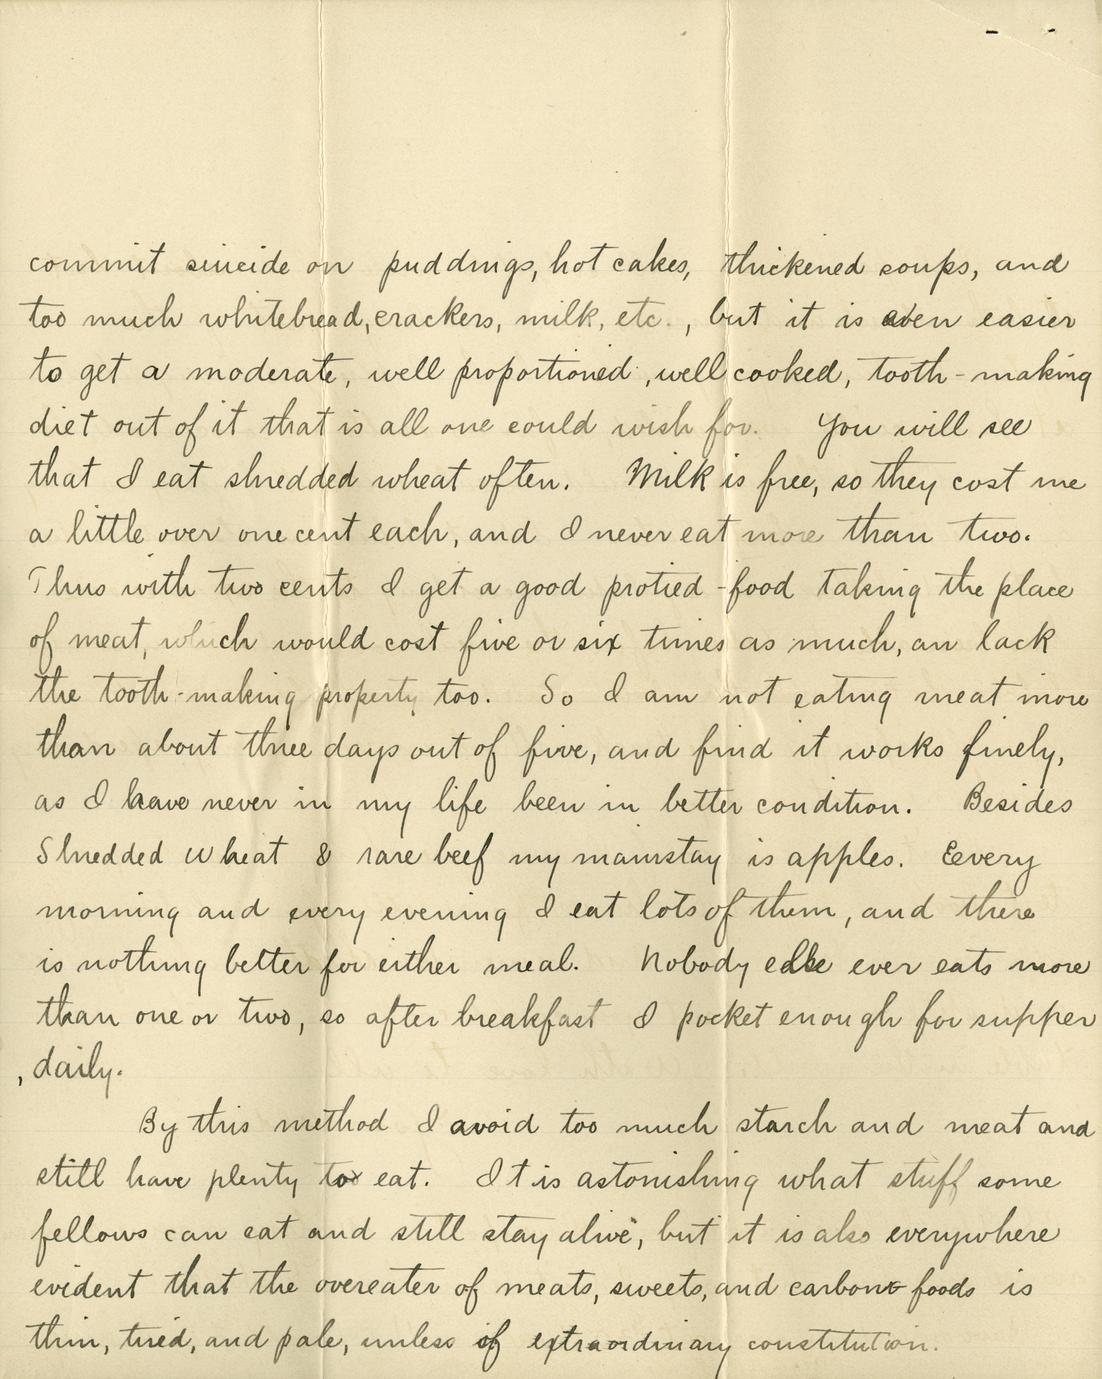 commit suicide on puddings, hot cakes, thickened soups, and
too much whitebread, crackers, milk, etc., but it is even easier
to get a moderate, well proportioned, well cooked, tooth-making
diet out of it that is all one could wish for. You will see
that I eat shredded wheat often. Milk is free, so they cost me
a little over one cent each, and I never eat more than two.
Thus with two cents I get a good protied-food taking the place
of meat, which would cost five or six times as much, an lack
the tooth-making property too. So I am not eating meat more
than about three days out of five, and find it works finely,
as I have never in my life been in better condition. Besides
Shredded Wheat & rare beef my mainstay is apples. Eevery
morning and every evening I eat lots of them, and there
is nothing better for either meal. Nobody else ever eats more
than one or two, so after breakfast I pocket enough for supper
, daily.
By this method I avoid too much starch and meat and
still have plenty to eat. It is astonishing what stuff some
fellows can eat and still stay alive, but it is also everywhere
evident that the overeater of meats, sweets, and carbon foods is
thin, tired, and pale, unless of extraordinary constitution.